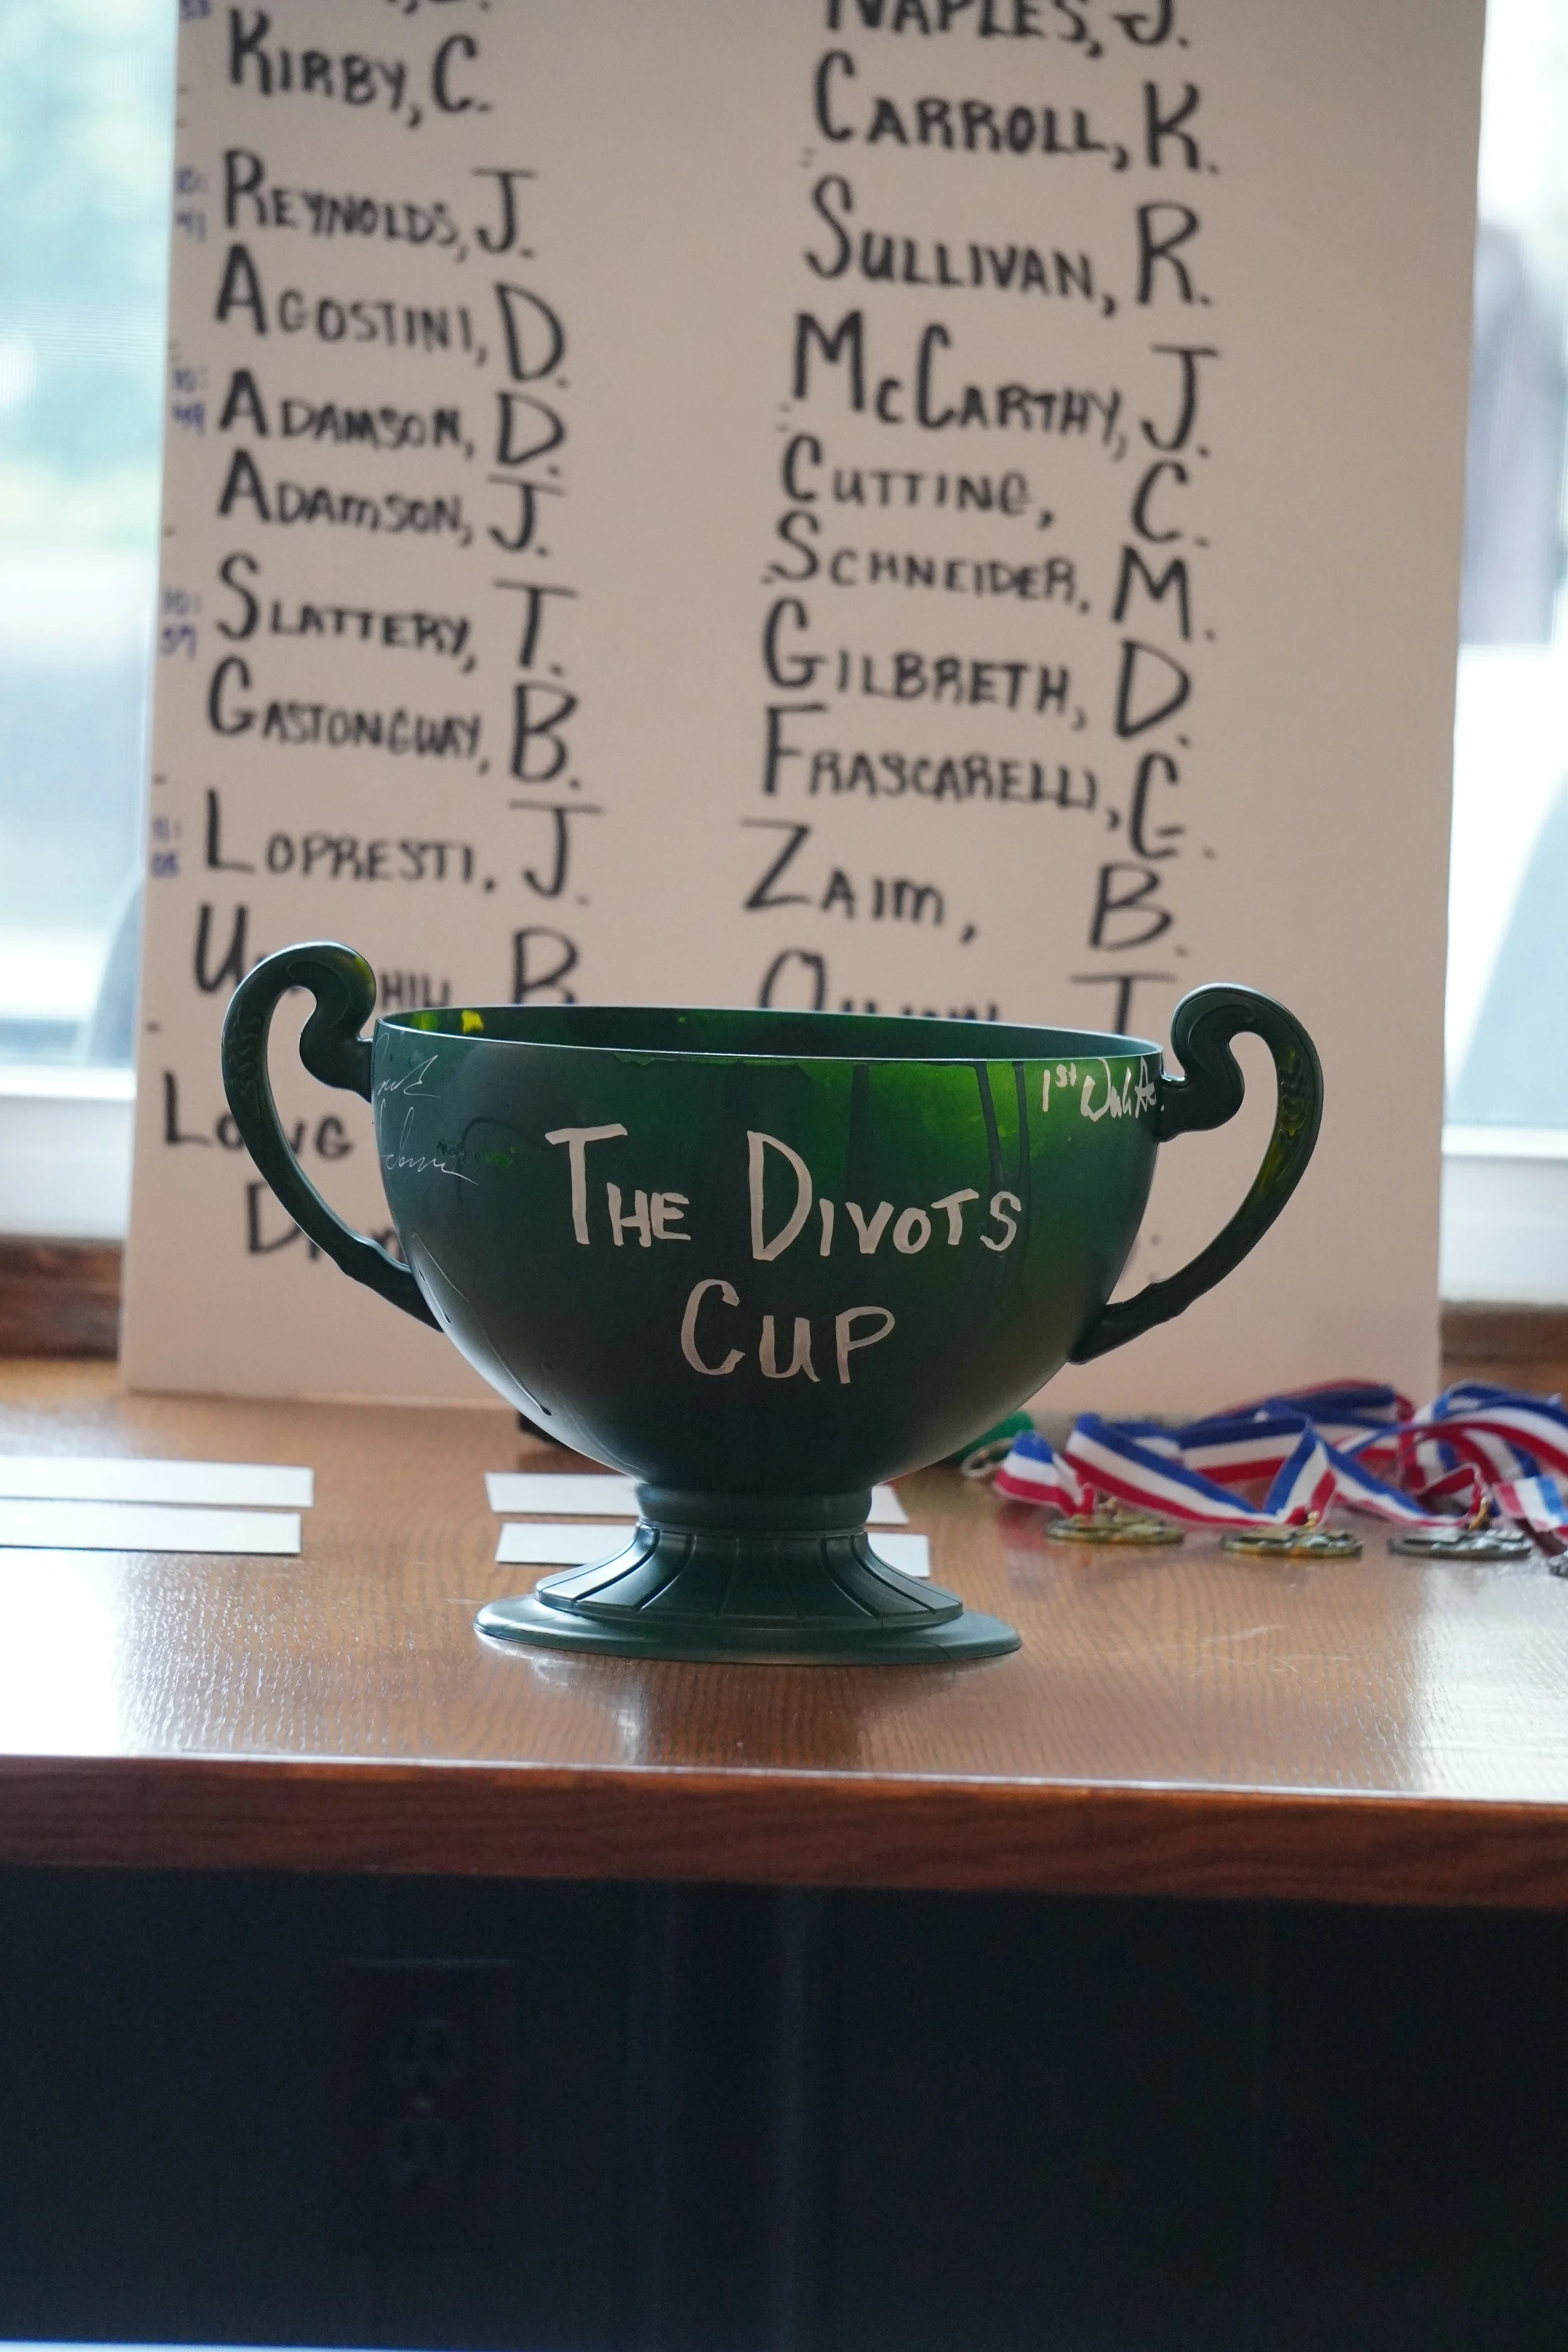 KIRBY, C.
REYNOLDS, J.
AGOSTINI, D.
10:
49
ADAMSON, D.
ADAMSON, J.
10:
57
SLATTERY, T.
GASTONGUAY, B.
11:
05
LOPRESTI, J.
B
LONG
NAPLES, J.
CARROLL, K.
SULLIVAN, R.
MCCARTHY, J.
CUTTING, C.
SCHNEIDER, M.
GILBRETH, D.
FRASCARELLI, C.
ZAIM, B.
1st
THE DIVOTS
CUP